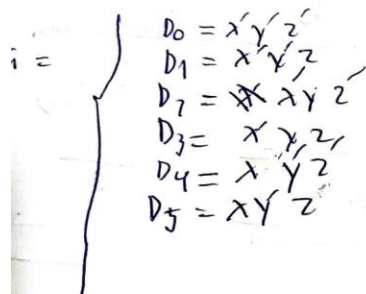 D0 = x'y'z'
i =
D1 = x'y'z
D2 = x'yz'
D3 = x'yz
D4 = xy'z'
D5 = xy'z